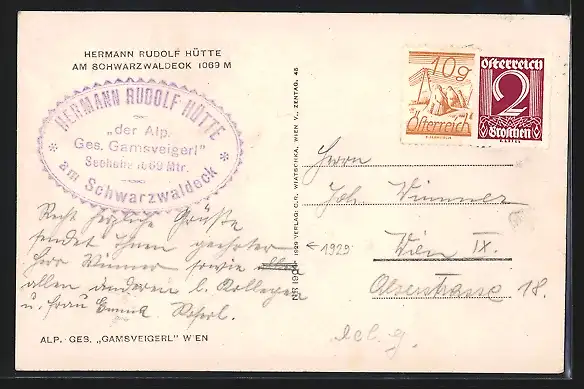 HERMANN RUDOLF HÜTTE
AM SCHWARZWALDECK 1069 M
HERMANN RUDOLF HÜTTE
„der Alp.
Ges. Gamsveigerl"
Seehöhe 1069 Mtr.
* am Schwarzwaldeck *
Recht herzliche Grüße
sendet Ihnen geehrter
Herr Wimmer sowie
allen anderen l. Kollegen
u. Frau Emma
ALP. GES. „GAMSVEIGERL" WIEN
1929 VERLAG: C.R. WIATSCHKA, WIEN V., ZENTAG. 45
← 1929
10g
Österreich
Österreich
2
Groschen
Herrn
Joh. Wimmer
Wien IX.
Alserstrasse 18.